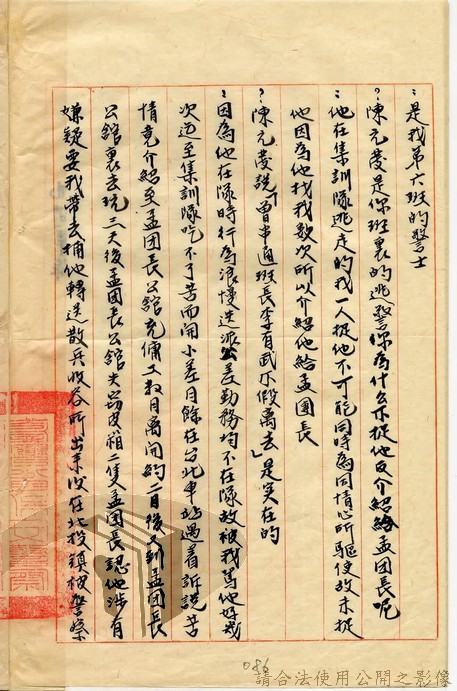 ：是我第六班的警士
？陳元菱是你班裏的逃警你為什么不捉他反介紹給孟團長呢
：他在集訓隊逃走的我一人捉他不可能同時為同情心所驅使故未捉
他因為他找我数次所以介紹他給孟團長
？陳元菱說「曾串通班長李有武不假離去」是实在的
：因為他在隊時行為浪慢迭派公差勤務均不在隊故被我罵他好幾
次迈至集訓隊吃不了苦而開小差月餘在台北車站遇着訴說苦
情竟介紹至孟团長公館充傭工数月离開約一月後又到孟团長
公舘裏去玩三天後孟团長公舘失窃皮箱二隻孟团長認他涉有
嫌疑要我带去捕他轉送散兵收容所出來後在北投鎮被警察
086
請合法使用公開之影像